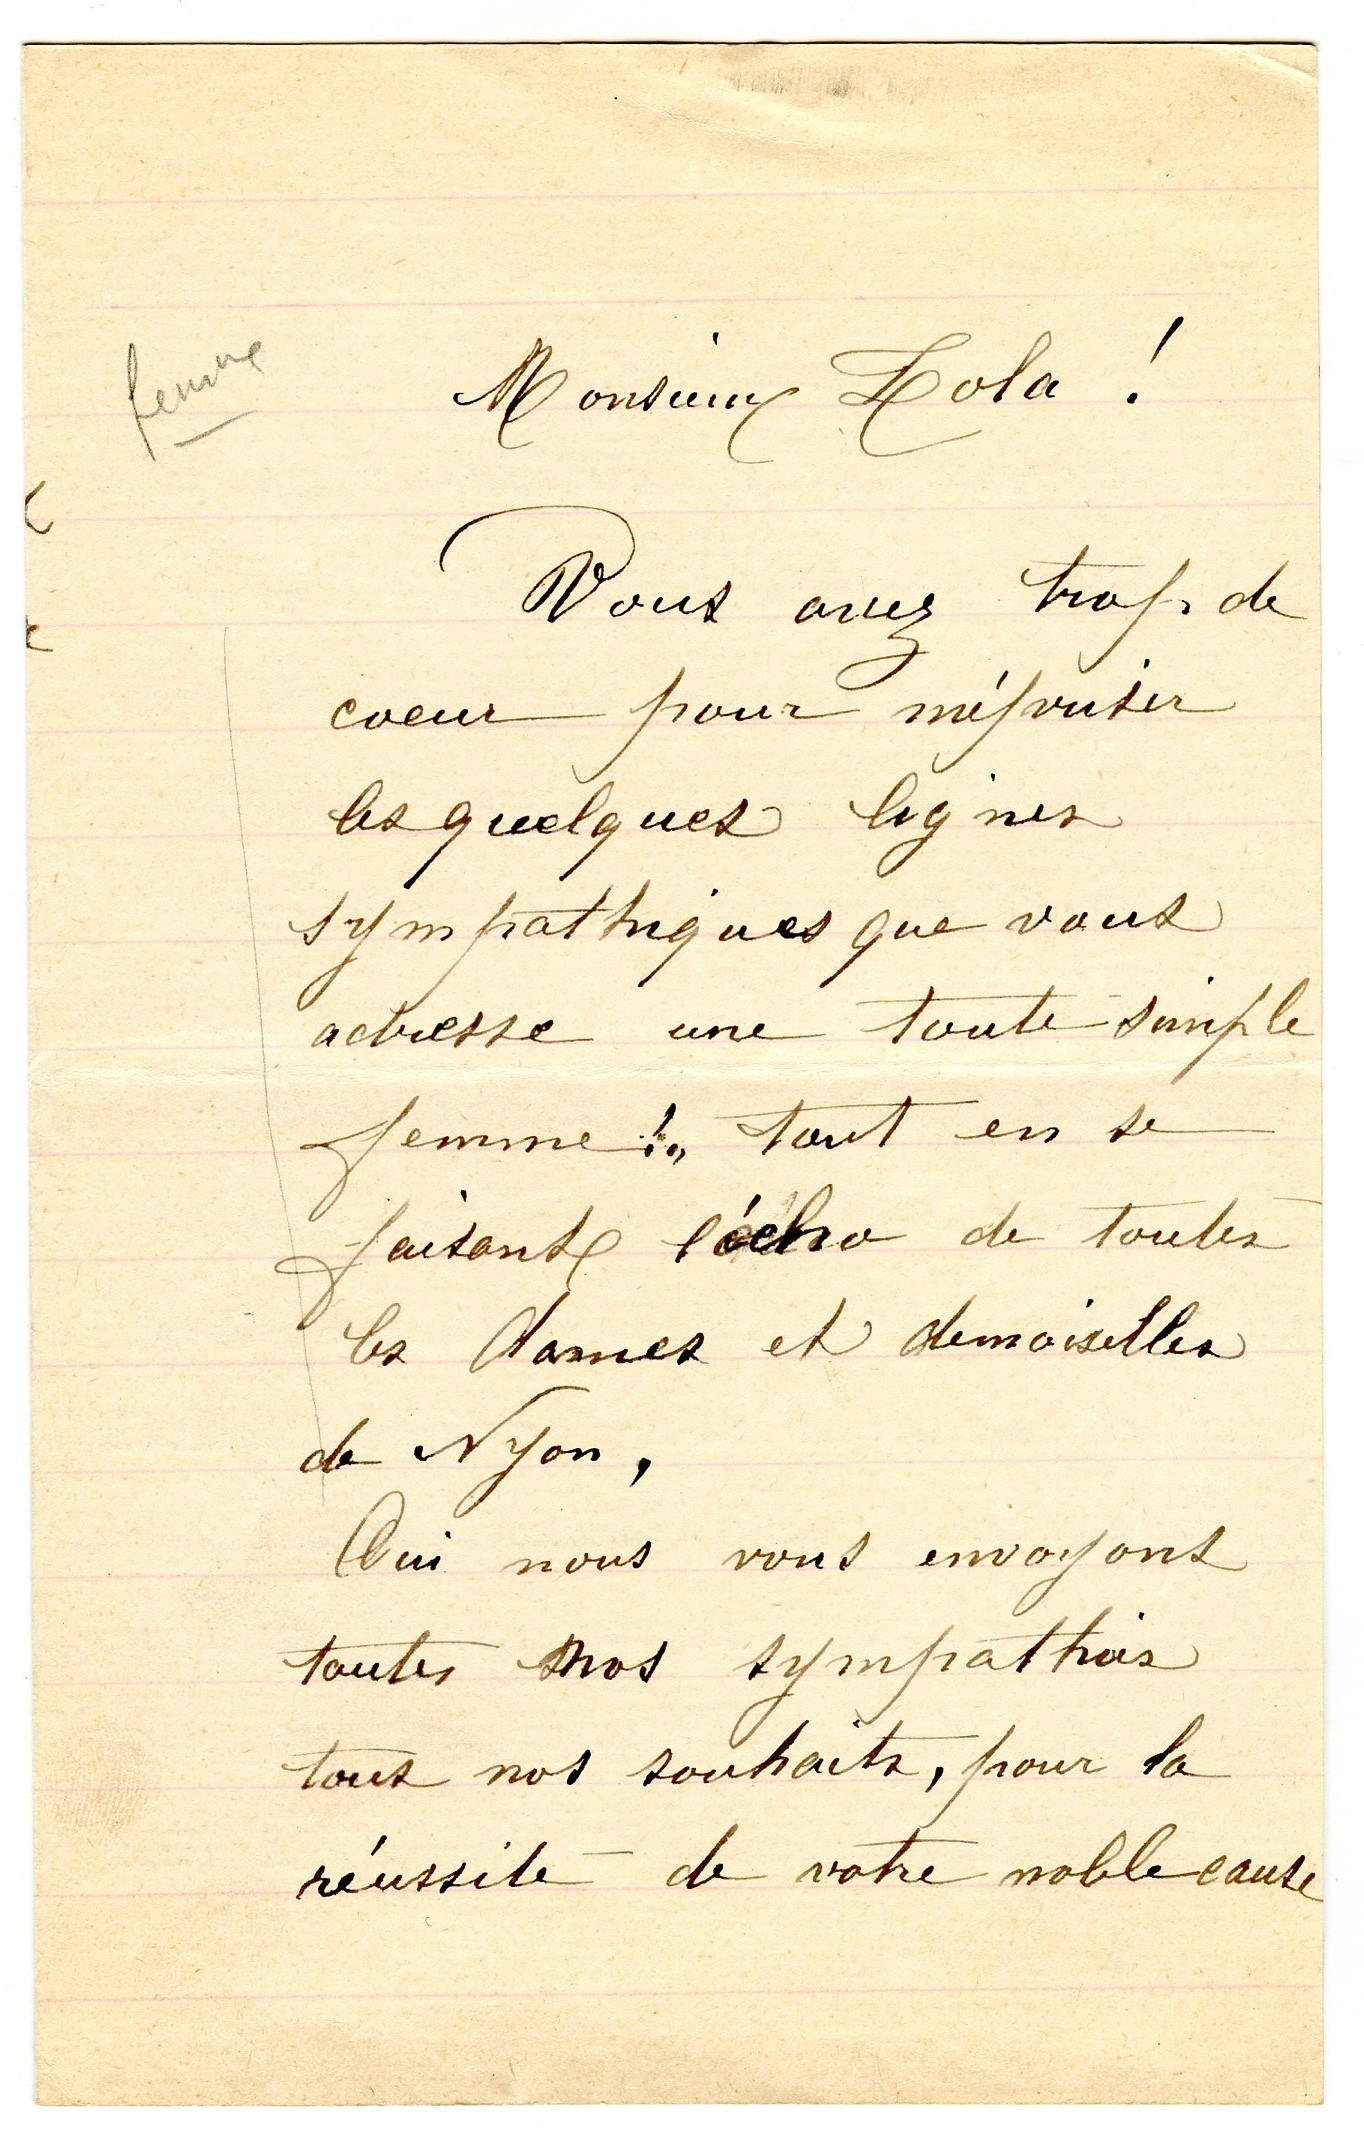 femme
Monsieur Zola !
Vous avez trop de
coeur pour mépriser
les quelques lignes
sympathiques que vous
adresse une toute simple
femme !., tout en se
faisant l'écho de toutes
les dames et demoiselles
de Nyon,
Oui nous vous envoyons
toutes nos sympathies
tous nos souhaits, pour la
réussite de votre noble cause